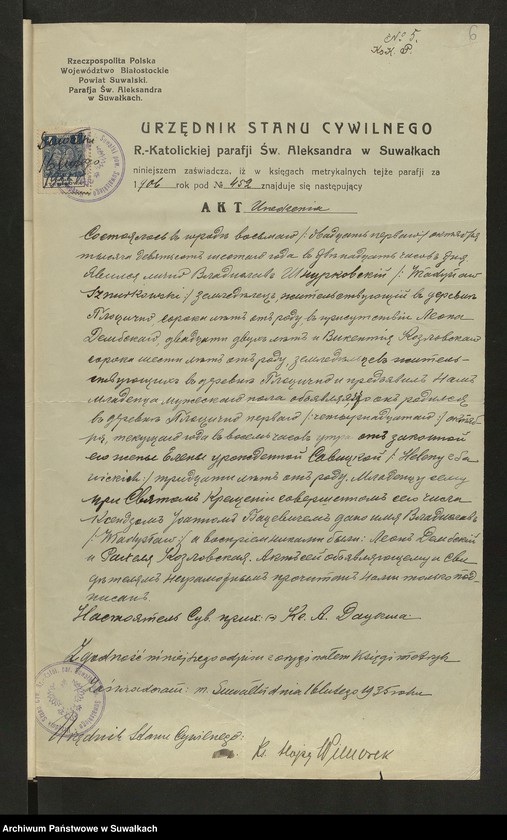 № 5.
6
Rzeczpospolita Polska
Województwo Białostockie
Powiat Suwalski.
Parafja Św. Aleksandra
w Suwałkach.
URZĘDNIK STANU CYWILNEGO
R.-Katolickiej parafji Św. Aleksandra w Suwałkach
niniejszem zaświadcza, iż w księgach metrykalnych tejże parafji za
1906 rok pod № 452 znajduje się następujący
AKT Urodzenia
Состоялось въ городѣ восьмаго /: двадцать перваго :/ октября
тысяча девятьсотъ шестаго года въ двѣнадцать часовъ дня
Явился лично Владиславъ Шнурковскій /: Władysław
Sznurkowski :/ земледѣлецъ жительствующій въ деревнѣ
сорока лѣтъ отъ роду въ присутствіи Леона
Дембскаго, двадцати двухъ лѣтъ и Викентія Козловскаго
сорока шести лѣтъ отъ роду, земледѣльцевъ житель-
ствующихъ въ деревнѣ и предъявилъ Намъ
младенца мужескаго пола объявляя, онъ родился
въ деревнѣ перваго /: четырнадцатаго :/ октяб-
ря, текущаго года въ восемь часовъ утра отъ законной
его жены Елены урожденной Савицкой /: Heleny
тридцати лѣтъ отъ роду. Младенцу сему
при Святомъ Крещеніи совершенномъ сего числа
Ксендзомъ дано имя Владиславъ
/: Władysław :/ а воспріемниками были: Леонъ Дембскій
и Козловская. Актъ сей объявляющему и Сви-
дѣтелямъ Неграмотнымъ прочитанъ Нами только под-
писанъ.
Настоятель Сув. прих: Кс. А.
Zgodność niniejszego odpisu z oryginałem Księgi metryk
zaświadczam: m. Suwałki dnia 16 lutego 1935 roku
Urzędnik Stanu Cywilnego:
Ks.
Archiwum Państwowe w Suwałkach